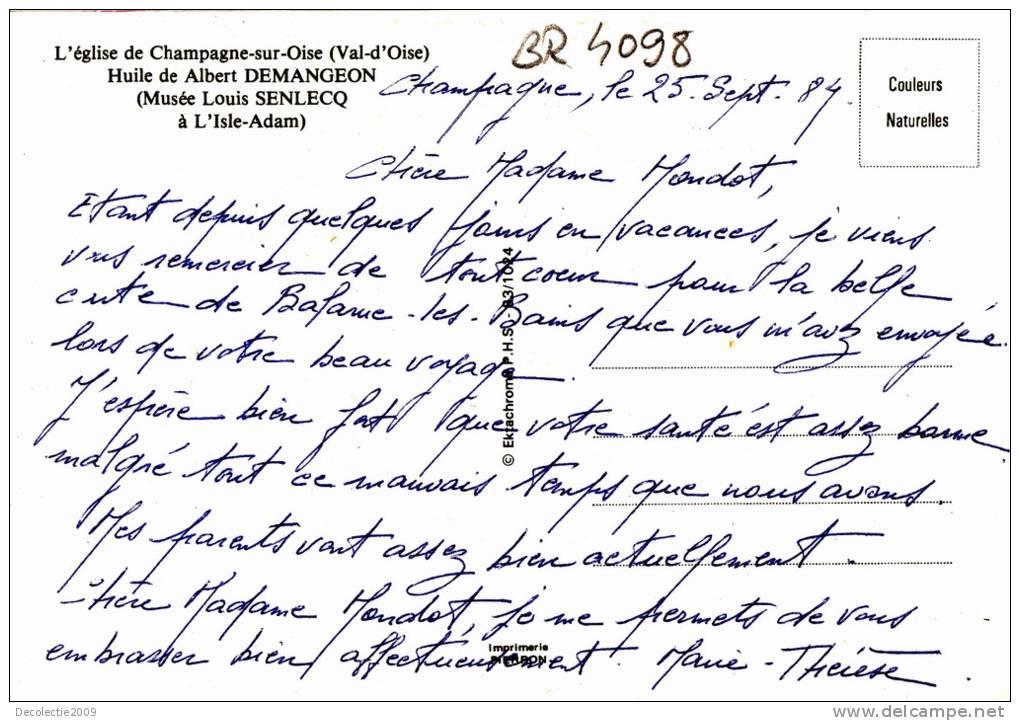 L'église de Champagne-sur-Oise (Val-d'Oise)
Huile de Albert DEMANGEON
(Musée Louis SENLECQ
à L'Isle-Adam)
BR 4098
Couleurs
Naturelles
Champagne, le 25. Sept. 84.
Chère Madame Mondot,
Etant depuis quelques jours en vacances, je viens
vous remercier de tout coeur pour la belle
carte de Balaruc-les-Bains que vous m'avez envoyée
lors de votre beau voyage.
J'espère bien fort que votre santé est assez bonne
malgré tout ce mauvais temps que nous avons.
Mes parents vont assez bien actuellement.
Chère Madame Mondot, je me permets de vous
embrasser bien affectueusement. Marie-Thérèse.
© Ektachrome P.H.S. - 83/1024
Imprimerie
PIERRON
Decolectie2009
www.delcampe.net